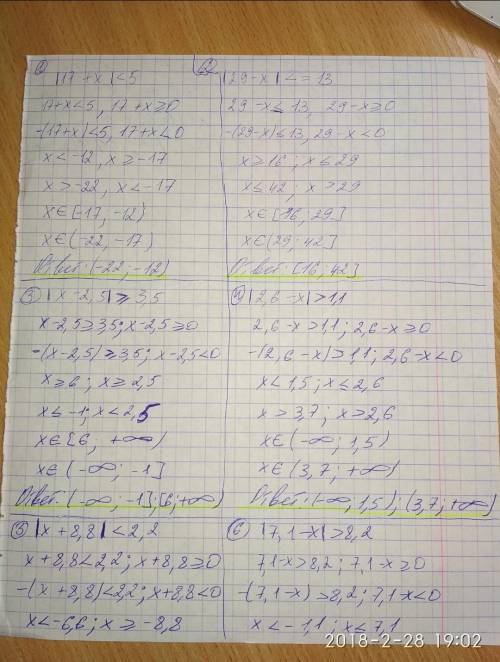 ① |17+x|<5
17+x<5, 17+x≥0
-(17+x)<5, 17+x<0
x<-12, x≥-17
x>-22, x<-17
x∈[-17, -12)
x∈(-22, -17)
Ответ: (-22; -12)
② |29-x|<=13
29-x≤13, 29-x≥0
-(29-x)≤13, 29-x<0
x≥16; x≤29
x≤42; x>29
x∈[16; 29]
x∈(29; 42]
Ответ: [16; 42]
③ |x-2,5|≥3,5
x-2,5≥3,5; x-2,5≥0
-(x-2,5)≥3,5; x-2,5<0
x≥6; x≥2,5
x≤-1; x<2,5
x∈[6, +∞)
x∈(-∞; -1]
Ответ: (-∞; -1]; [6; +∞)
④ |2,6-x|>1,1
2,6-x>1,1; 2,6-x≥0
-(2,6-x)>1,1; 2,6-x<0
x<1,5; x≤2,6
x>3,7; x>2,6
x∈(-∞; 1,5)
x∈(3,7; +∞)
Ответ: (-∞, 1,5); (3,7; +∞)
⑤ |x+8,8|<2,2
x+8,8<2,2; x+8,8≥0
-(x+8,8)<2,2; x+8,8<0
x<-6,6; x≥-8,8
⑥ |7,1-x|>8,2
7,1-x>8,2; 7,1-x≥0
-(7,1-x)>8,2; 7,1-x<0
x<-1,1; x≤7,1
2018-2-28 19:02